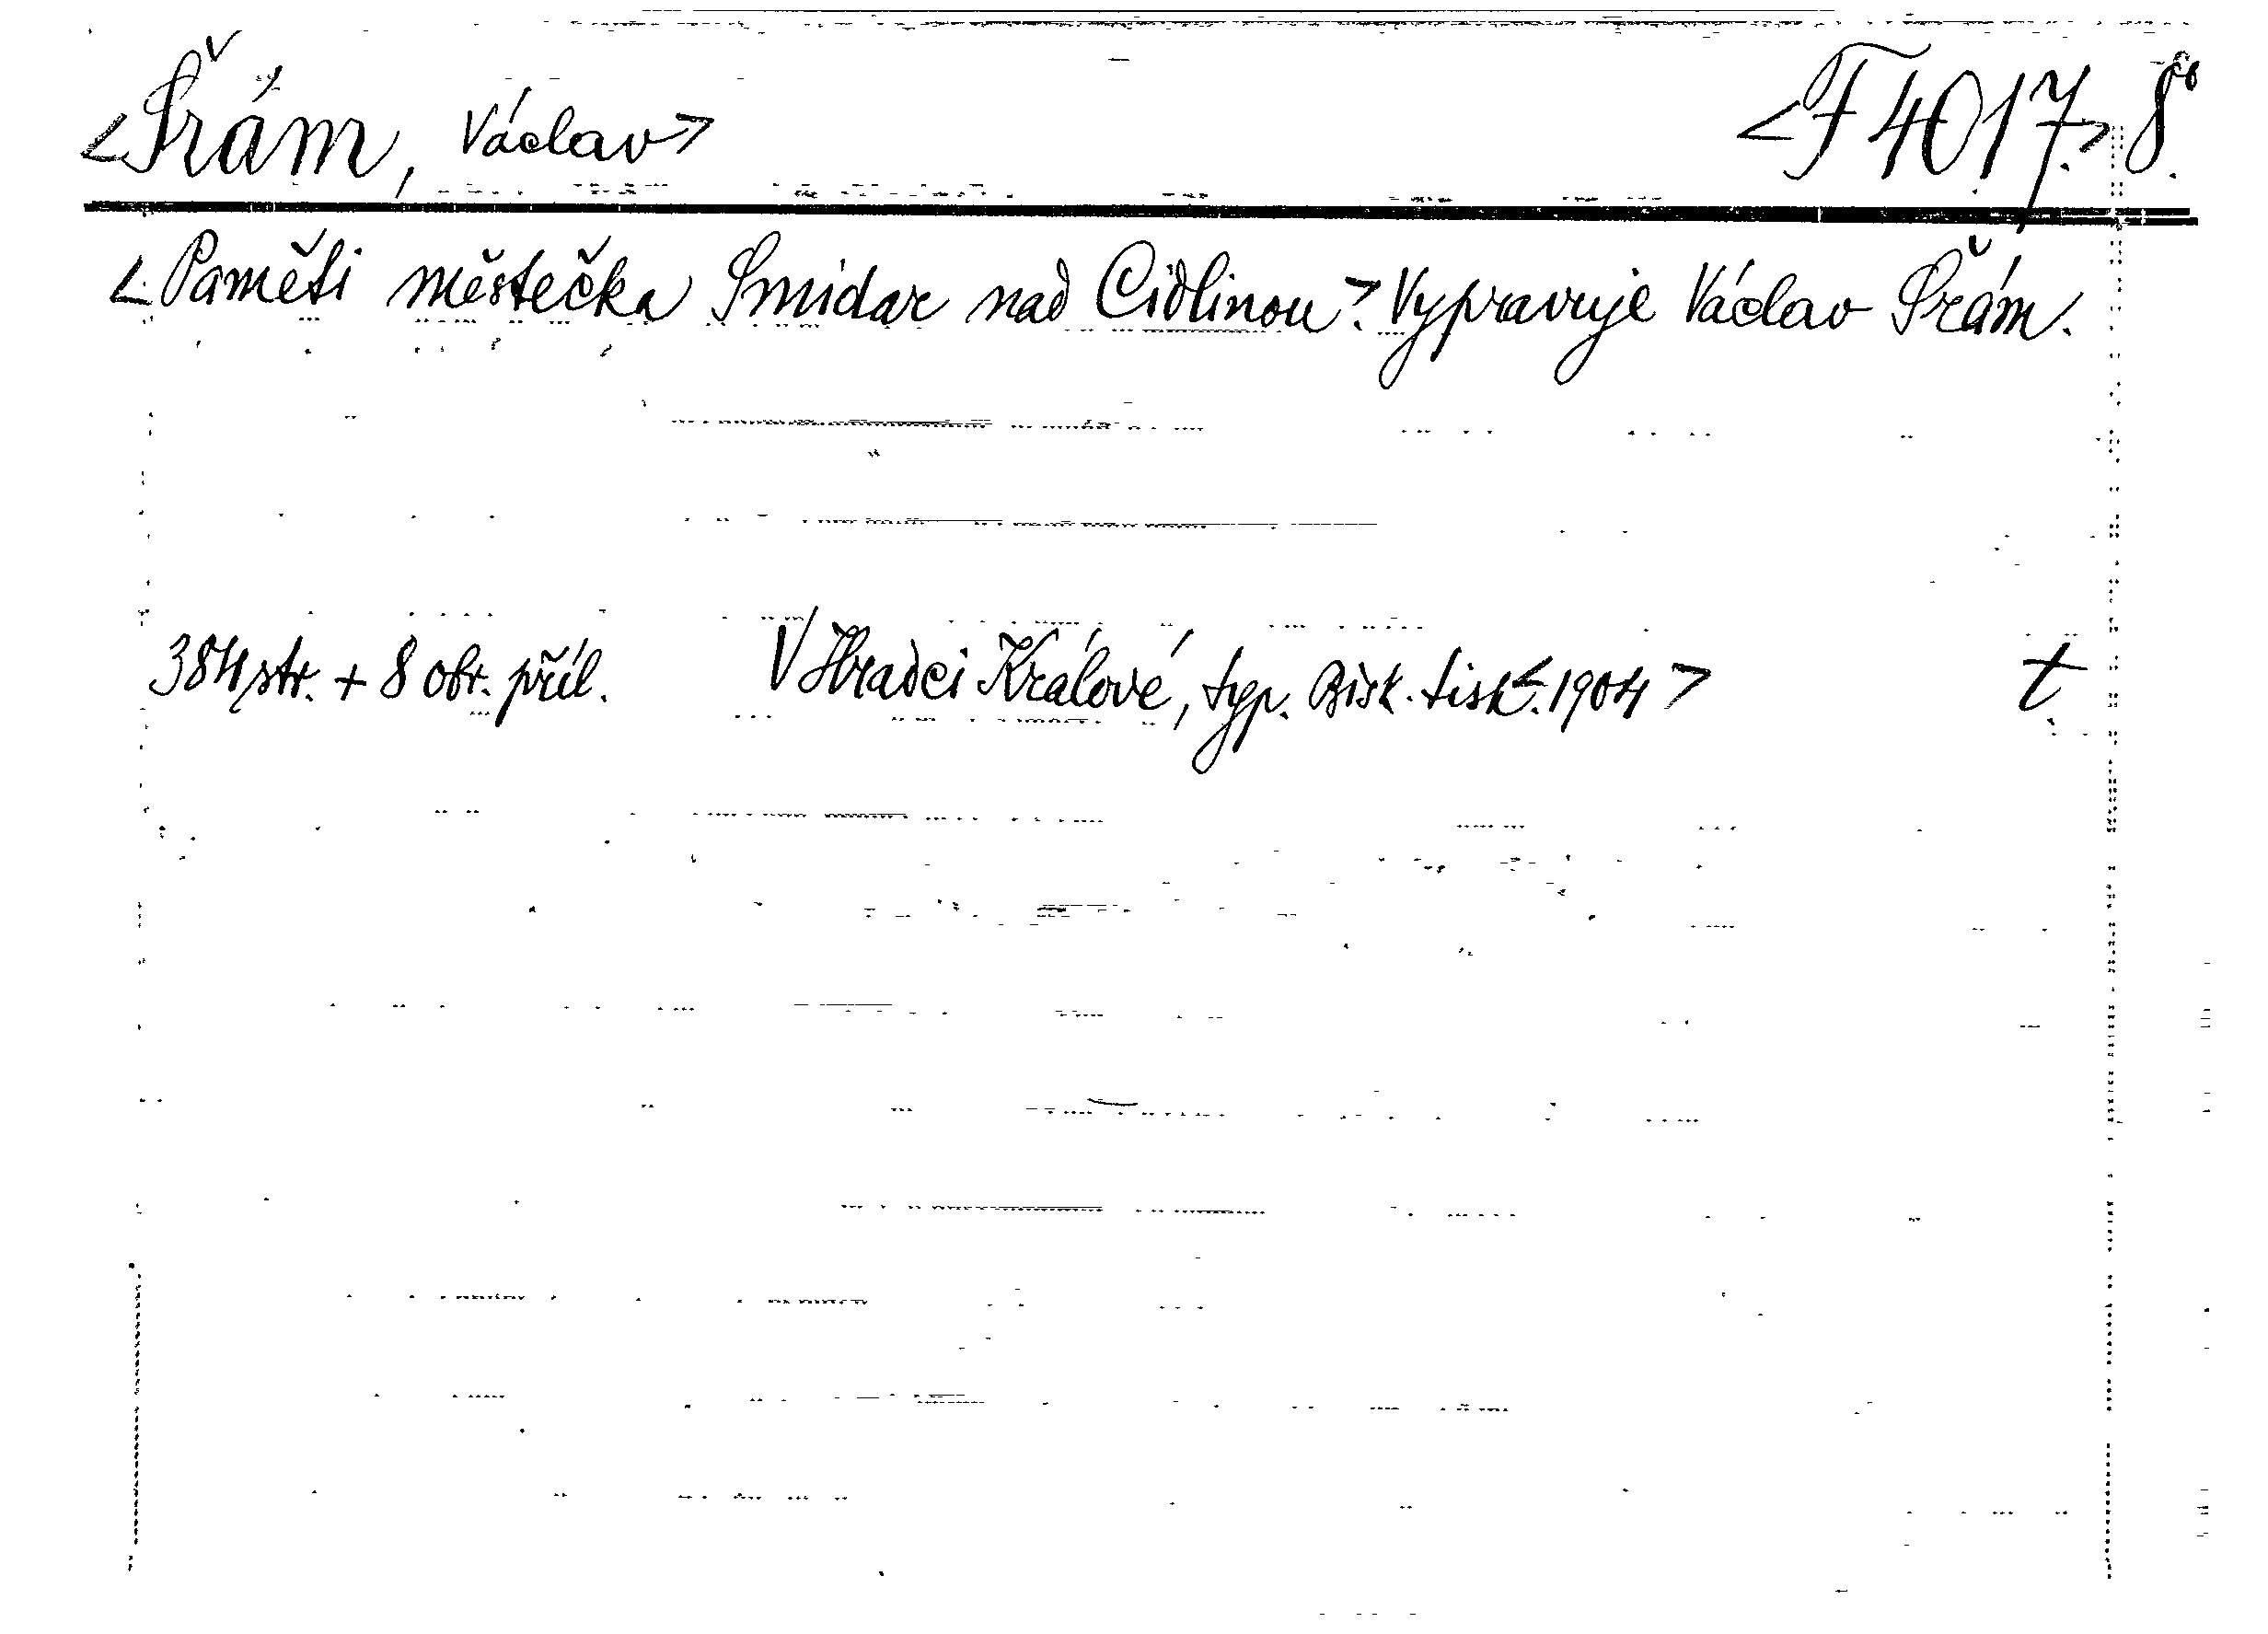 <Šrám, Václav> <F 4017.> 8°.
<Paměti městečka Smidar nad Cidlinou.> Vypravuje Václav Šrám.
384 str. + 8 obr. příl. V Hradci Králové, typ. Bisk. tisk. <1904> t.